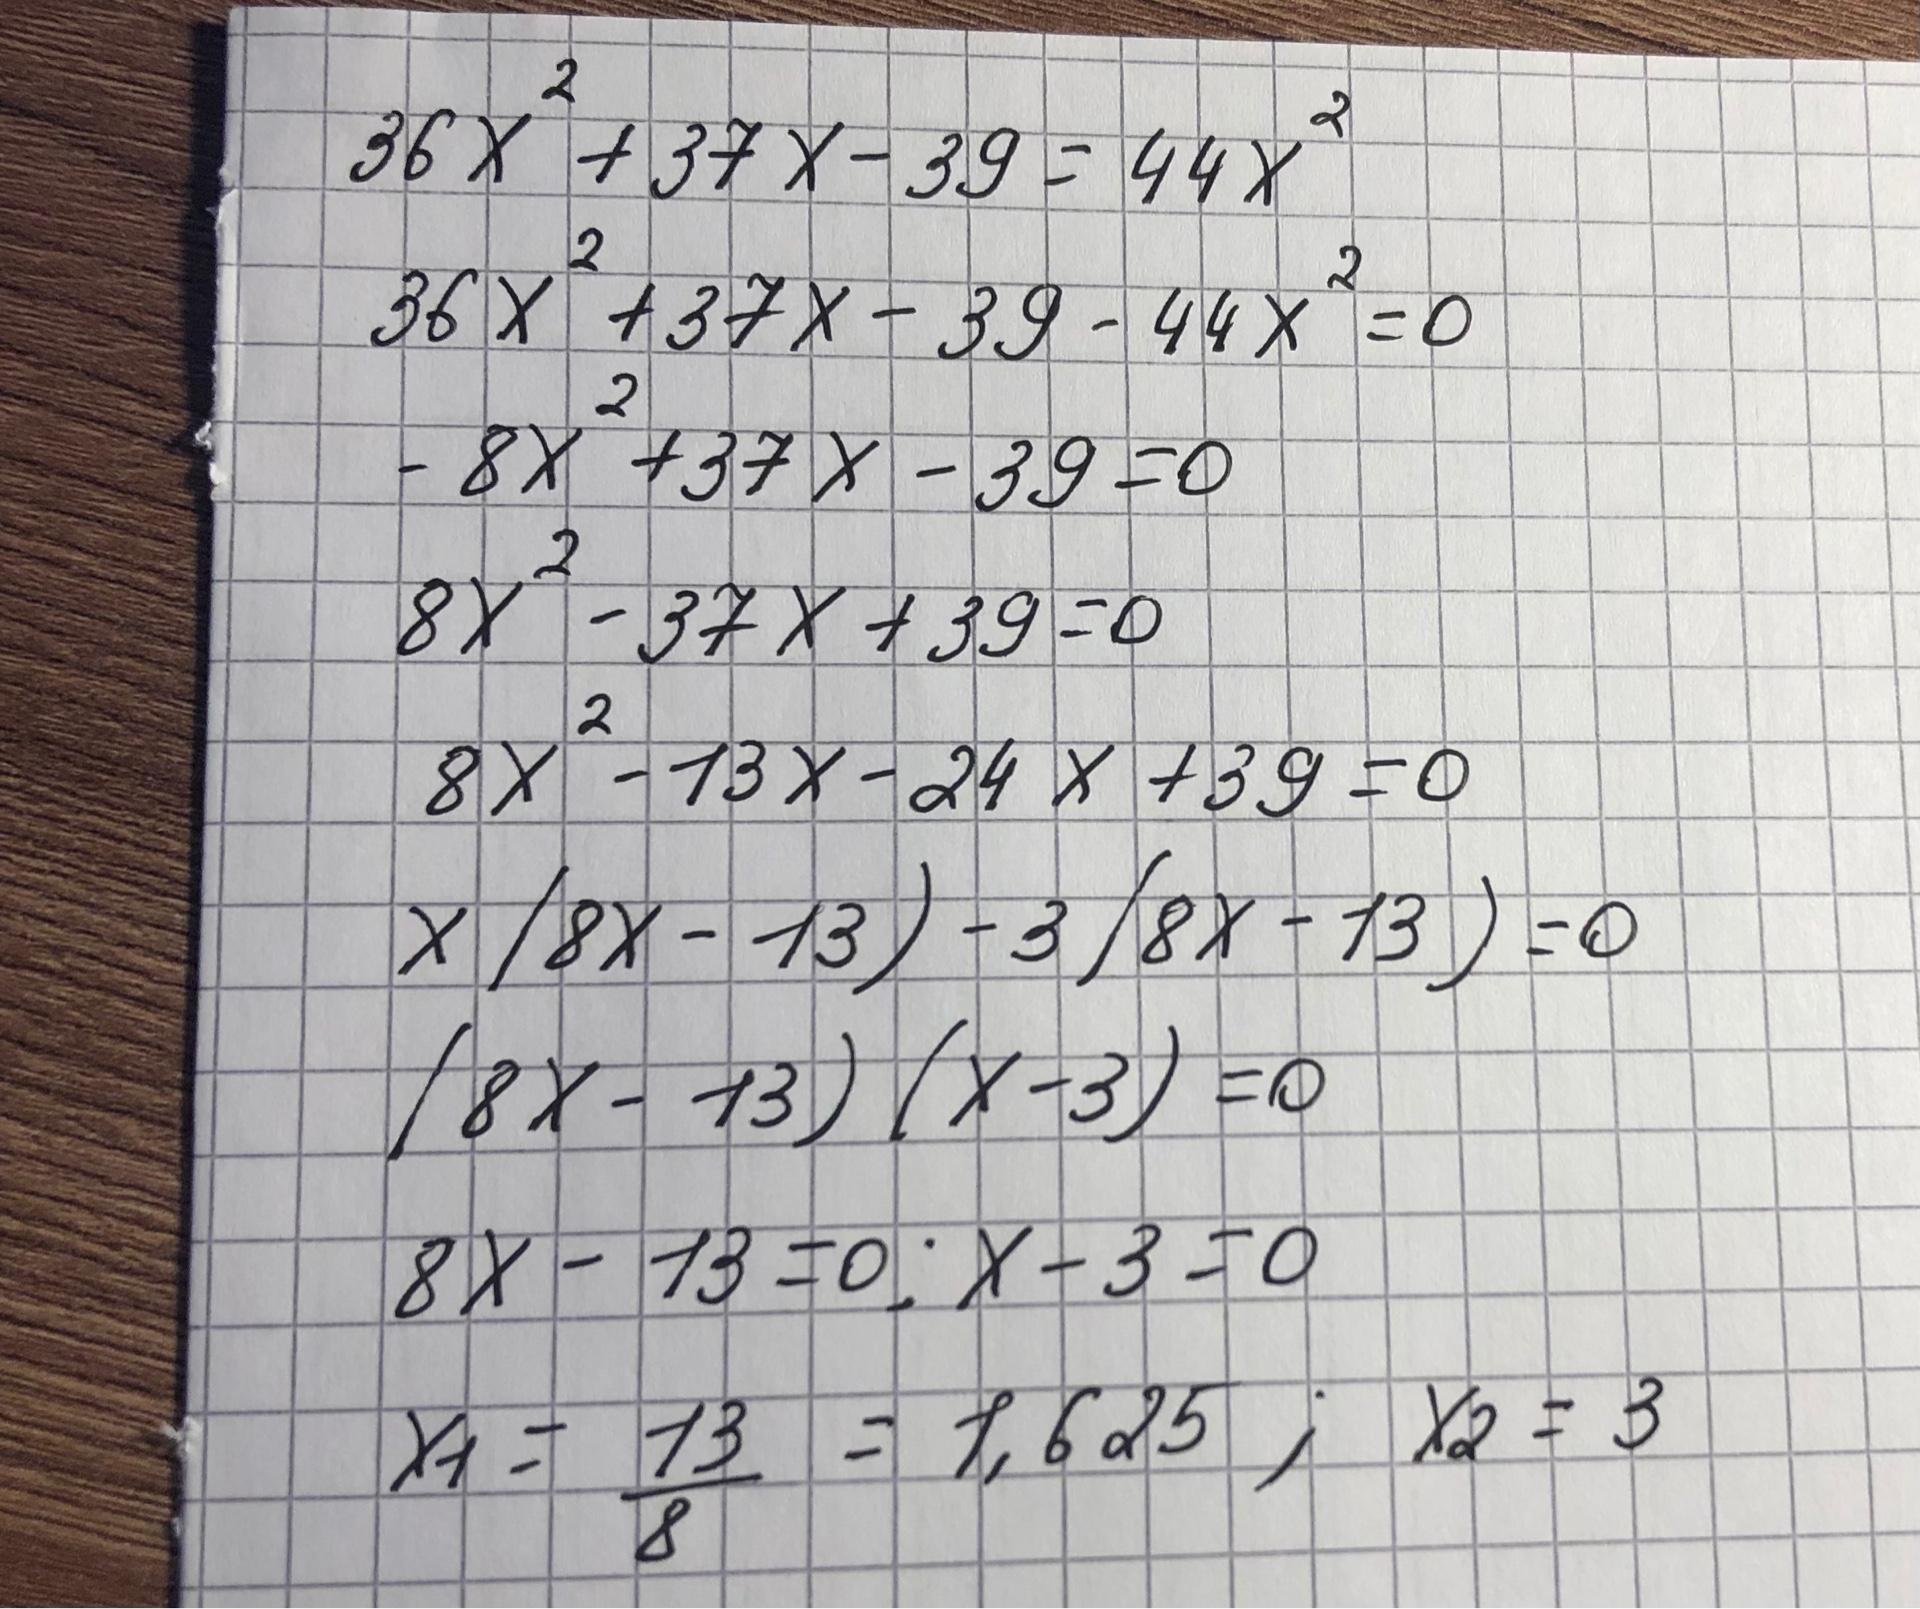 36x² + 37x - 39 = 44x²
36x² + 37x - 39 - 44x² = 0
- 8x² + 37x - 39 = 0
8x² - 37x + 39 = 0
8x² - 13x - 24x + 39 = 0
x(8x - 13) - 3(8x - 13) = 0
(8x - 13)(x - 3) = 0
8x - 13 = 0; x - 3 = 0
x1 = 13/8 = 1,625; x2 = 3